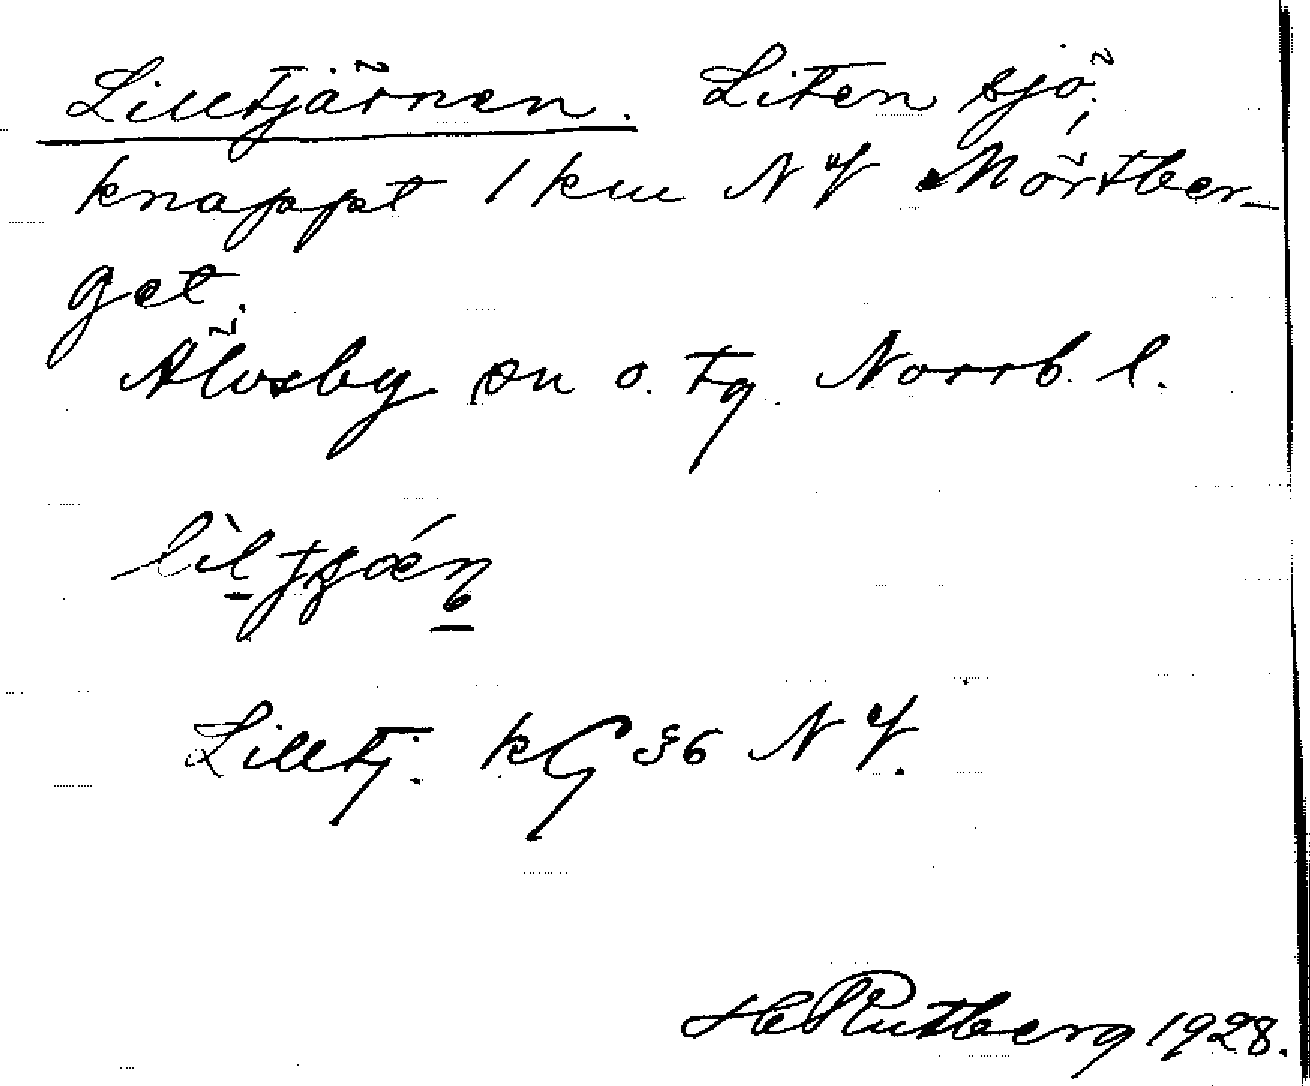 Lilltjärnen. Liten sjö,
knappt 1 km NV Mörtber-
get.
Älvsby sn o. tg. Norrb. l.
Lilltj. kG 36 NV.
H Rutberg 1928.